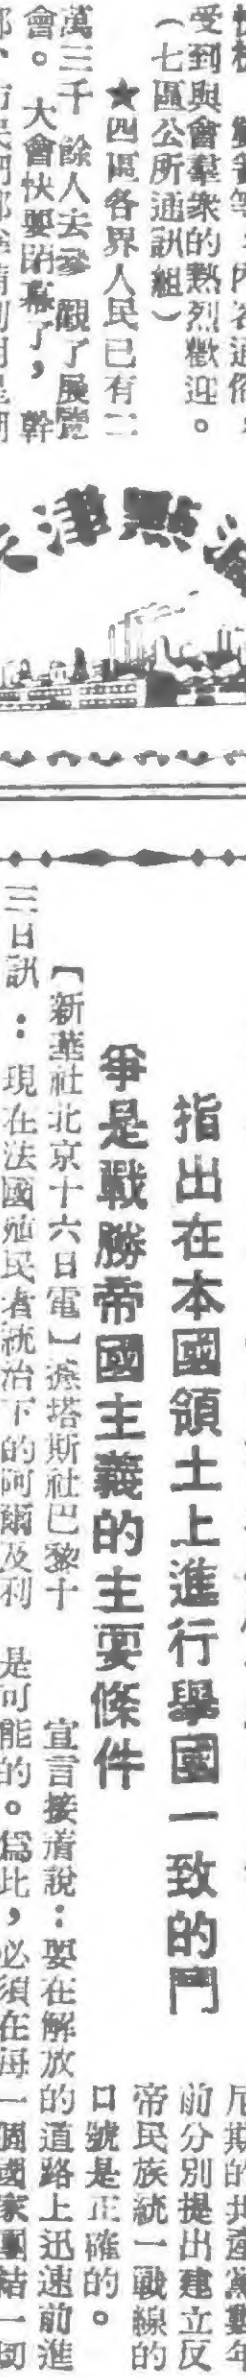 受到與會羣衆的熱烈歡迎。
（七區公所通訊組）
★四區各界人民已有二
萬三千餘人去參觀了展覽
會。大會快要閉幕了，幹
天津點滴
指出在本國領土上進行舉國一致的鬥
爭是戰勝帝國主義的主要條件
【新華社北京十六日電】據塔斯社巴黎十
三日訊：現在法國殖民者統治下的阿爾及利
尼斯的共產黨數年
前分別提出建立反
帝民族統一戰線的
口號是正確的。
宣言接着說：要在解放的道路上迅速前進
是可能的。爲此，必須在每一個國家團結一切